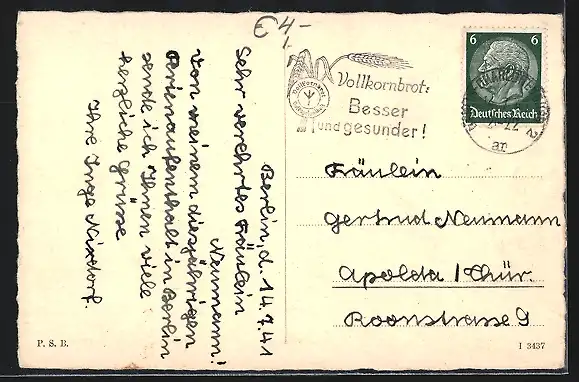 €4-
Berlin, d. 14.7.41
Sehr verehrtes Fräulein
Neumann!
Von meinem diesjährigen
Ferienaufenthalt in Berlin
sende ich Ihnen viele
herzliche Grüsse
Ihre Inge Nixdorf.
Vollkornbrot:
Besser
und gesunder!
6 6
Deutsches Reich
Fräulein
Gertrud Neumann
Apolda / Thür.
Roonstrasse 9
P. S. B.
I 3437